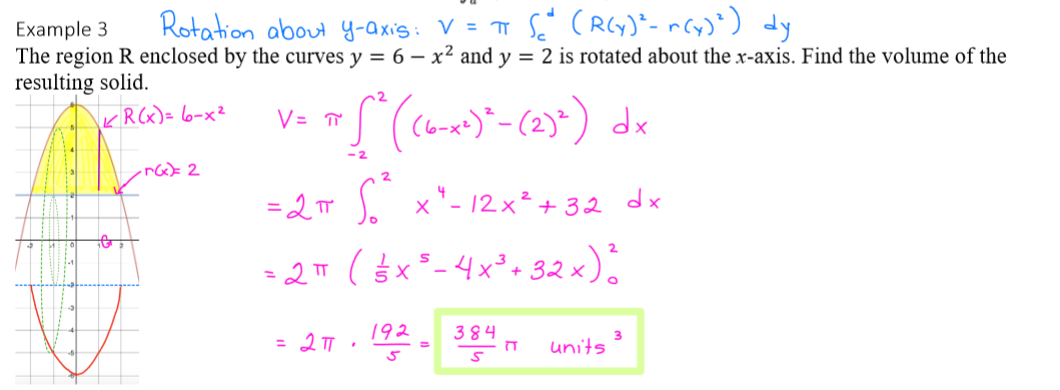 Example 3 Rotation about y-axis: V = π ∫_c^d (R(y)² - r(y)²) dy
The region R enclosed by the curves y = 6 − x² and y = 2 is rotated about the x-axis. Find the volume of the
resulting solid.
R(x) = 6-x²
r(x) = 2
V = π ∫_{-2}^{2} ((6-x²)² - (2)²) dx
= 2π ∫_0^2 x⁴ - 12x² + 32 dx
= 2π (1/5 x⁵ - 4x³ + 32x)_0^2
= 2π · 192/5 = 384/5 π units³